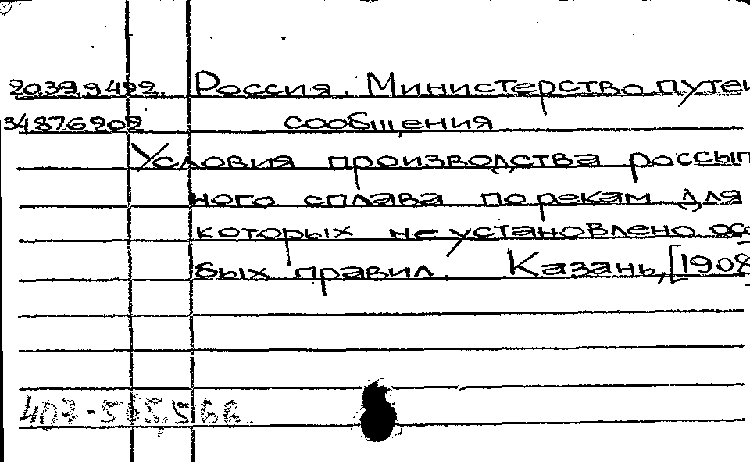 2039.9492. Россия. Министерство путей
34876902 сообщения
Условия производства россып
ного сплава по рекам для
которых не установлено осо
бых правил. Казань, [1908